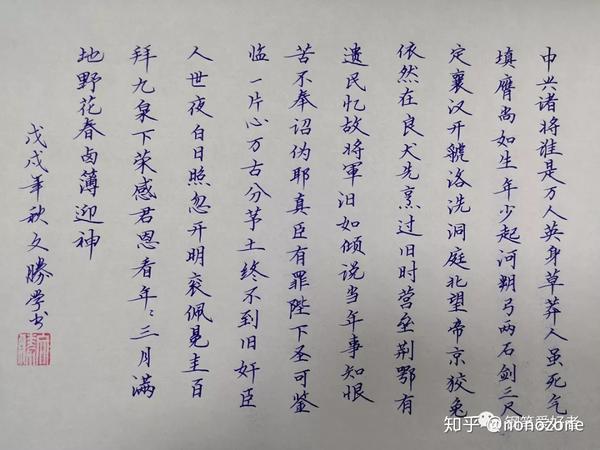 中兴诸将谁是万人英身草莽人虽死气
填膺尚如生年少起河朔弓两石剑三尺
定襄汉开虢洛洗洞庭北望帝京狡兔
依然在良犬先烹过旧时营垒荆鄂有
遗民忆故将軍泪如倾说当年事知恨
苦不奉诏伪耶真臣有罪陛下圣可鉴
临一片心万古分茅土终不到旧奸臣
人世夜白日照忽开明衮佩冕圭百
拜九泉下荣感君恩看年〻三月满
地野花春卤薄迎神
戊戌年秋文勝学书
钢笔爱好者
知乎 @nonozone